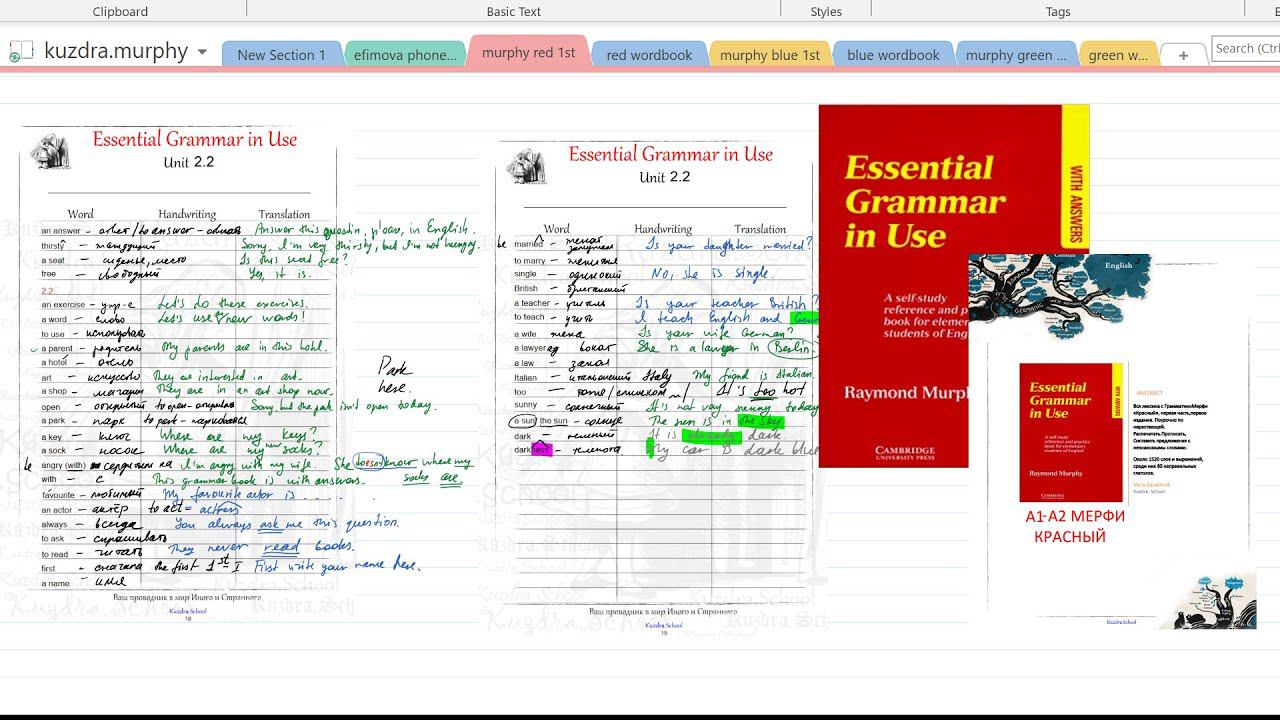 Clipboard
Basic Text
Styles
Tags
kuzdra.murphy
New Section 1
efimova phone...
murphy red 1st
red wordbook
murphy blue 1st
blue wordbook
murphy green ...
green w...
+
Search (Ctrl
Essential Grammar in Use
Unit 2.2
Word Handwriting Translation
an answer - ответ / to answer - Answer this question, please, in English.
thirsty - жаждущий Sorry, I'm very thirsty, but I'm not hungry.
a seat - сиденье, место Is this seat free?
free - свободный Yes, it is.
2.2
an exercise - упр-е Let's do these exercises.
a word - слово Let's use new words!
to use - использовать
a parent - родитель My parents are in this hotel.
a hotel - отель
art - искусство They are interested in art.
a shop - магазин They are in an art shop now.
open - открытый to open - Sorry, but the park isn't open today.
a park - парк to park - парковать
a key - ключ Where are my keys?
a sock - носок Where are my new socks?
be angry (with) - I'm angry with my wife. She doesn't know where my socks are.
with - с This grammar book is with answers.
favourite - любимый My favourite actor is ....
an actor - актёр to act = actress
always - всегда You always ask me this question.
to ask - спрашивать
to read - читать They never read books.
first - сначала the first 1st I First write your name here.
a name - имя
Ваш проводник в мир Иного и Странного
Kuzdra.School
18
Park
here.
Essential Grammar in Use
Unit 2.2
Word Handwriting Translation
be married - женат Is your daughter married?
to marry - жениться
single - одинокий No, she is single.
British - британский
a teacher - учитель Is your teacher British?
to teach - учить I teach English and
a wife жена Is your wife German?
a lawyer адвокат She is a lawyer in Berlin.
a law - закон
Italian - итальянский Italy My friend is Italian.
too - тоже / слишком It's too hot
sunny - солнечный It's not very sunny today
a sun/ the sun - солнце The sun is in the sky
dark - темный It is already dark.
dark - My car is dark blue
Ваш проводник в мир Иного и Странного
Kuzdra.School
19
Essential
Grammar
in Use
WITH ANSWERS
A self-study
reference and p
book for elemen
students of Eng
Raymond Murph
CAMBRIDGE
UNIVERSITY PRESS
English
Essential
Grammar
in Use
WITH ANSWERS
A self-study
reference and practice
book for elementary
students of English
Raymond Murphy
CAMBRIDGE
ABSTRACT
Вся лексика с ГрамматикиМерфи
«Красный», первая часть,первое
издание. Поурочно по
нарастающей.
Распечатать.Прописать,
Составить предложения с
незнакомыми словами.
Около 1520 слов и выражений,
среди них 80 неправильных
глаголов.
Vera Zavalniuk
Kuzdra. School
А1-А2 МЕРФИ
КРАСНЫЙ
Kuzdra.School